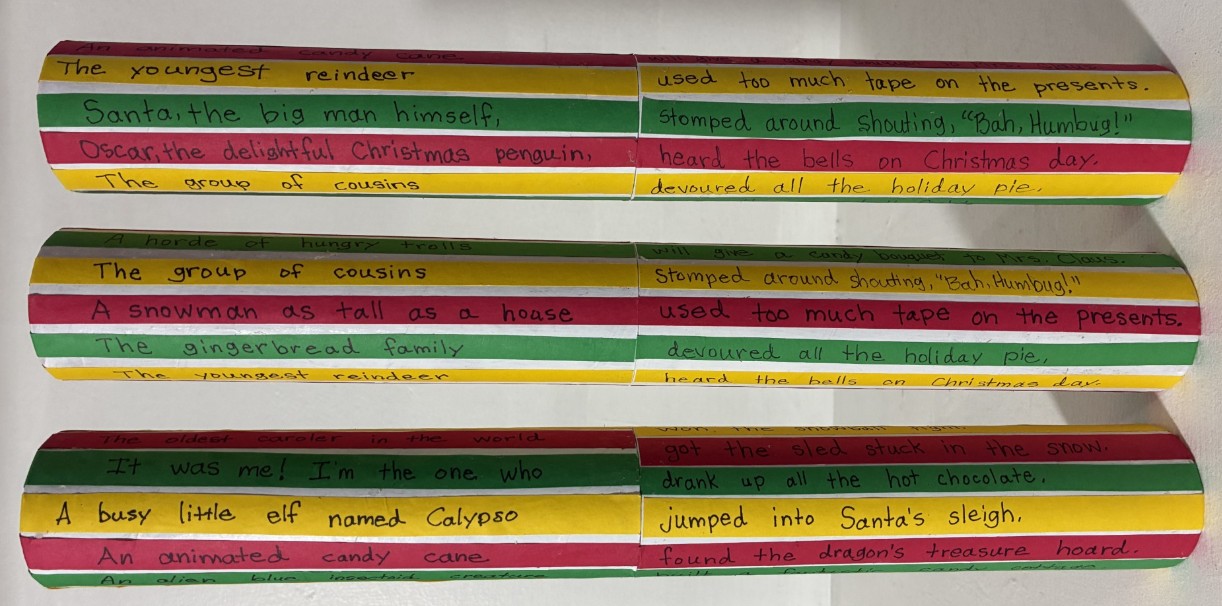 An animated candy cane will give a candy
The youngest reindeer used too much tape on the presents.
Santa, the big man himself, stomped around shouting, "Bah, Humbug!"
Oscar, the delightful Christmas penguin, heard the bells on Christmas day.
The group of cousins devoured all the holiday pie.
A horde of hungry trolls will give a candy bouquet to Mrs. Claus.
The group of cousins stomped around shouting, "Bah, Humbug!"
A snowman as tall as a house used too much tape on the presents.
The gingerbread family devoured all the holiday pie.
The youngest reindeer heard the bells on Christmas day.
The oldest caroler in the world won the snowball fight.
It was me! I'm the one who got the sled stuck in the snow.
drank up all the hot chocolate.
A busy little elf named Calypso jumped into Santa's sleigh.
An animated candy cane found the dragon's treasure hoard.
An alien blue insectoid creature built a fantastic candy